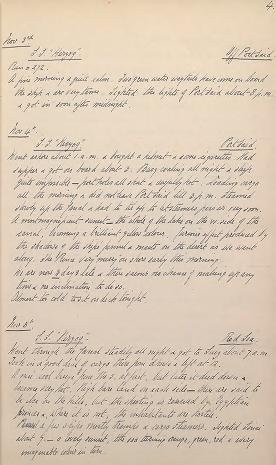 4.
Nov 3rd
S.S. "Herzog". Off Port Said.
Run = 272.
A fine morning & quite calm. Two green water have come on board
the ship & are very tame. Sighted the lights of Port Said about 8 p.m.
& got in soon after midnight.
Nov 4th
S.S. "Herzog" Port Said.
Went ashore about 1 a.m. & bought a helmet & some cigarettes. Had
supper & got on board about 3. Busy coaling all night & sleep
quite impossible — portholes all shut & hot. Loading cargo
all the morning & did not leave Port Said till 3 p.m. Steamed
slowly up the Canal & had to tie up to let steamers pass us very soon.
A most magnificent sunset — the whole of the lakes on the W. side of the
canal, becoming a brilliant colour. Curious effect produced by
the shadow of the ship's funnel & mast on the desert as we went
along. The Prince very merry on shore early this morning.
We are now 3 days late & there seems no chance of making up any
time & no inclination to do so.
Almost too cold to sit on deck tonight.
Nov 5th
S.S. "Herzog" Red Sea.
Went through the Canal steadily all night & got to Suez about 7 a.m.
Took in a good deal of cargo there from & left at 12.
A nice cool breeze from the S. at first, but later it died down &
became very hot. High bare land on each side — there are said to
be in the hills, but the shooting is reserved by Egyptian
& where it is not, the inhabitants are hostile.
Passed a few ships mostly & cargo steamers. Sighted
about 5. — A lovely sunset, the sea turning orange, green, red & every
imaginable colour in turn.